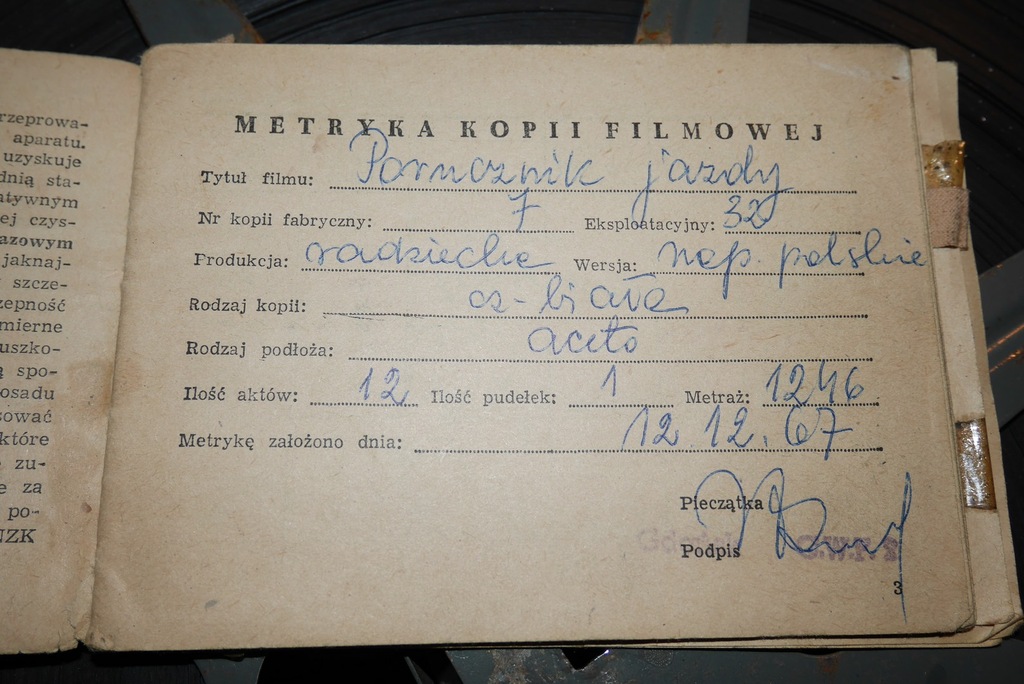 rzeprowa-
aparatu.
uzyskuje
dnią sta-
atywnym
ej czys-
azowym
jaknaj-
szcze-
zepność
mierne
uszko-
ą spo-
osadu
sować
które
zu-
e za
po-
NZK
METRYKA KOPII FILMOWEJ
Tytuł filmu: Porucznik jazdy
Nr kopii fabryczny: 7 Eksploatacyjny: 32
Produkcja: radziecka Wersja: nap. polskie
Rodzaj kopii: cz-biała
Rodzaj podłoża: aceto
Ilość aktów: 12 Ilość pudełek: 1 Metraż: 1246
Metrykę założono dnia: 12.12.67
Pieczątka
Podpis
3